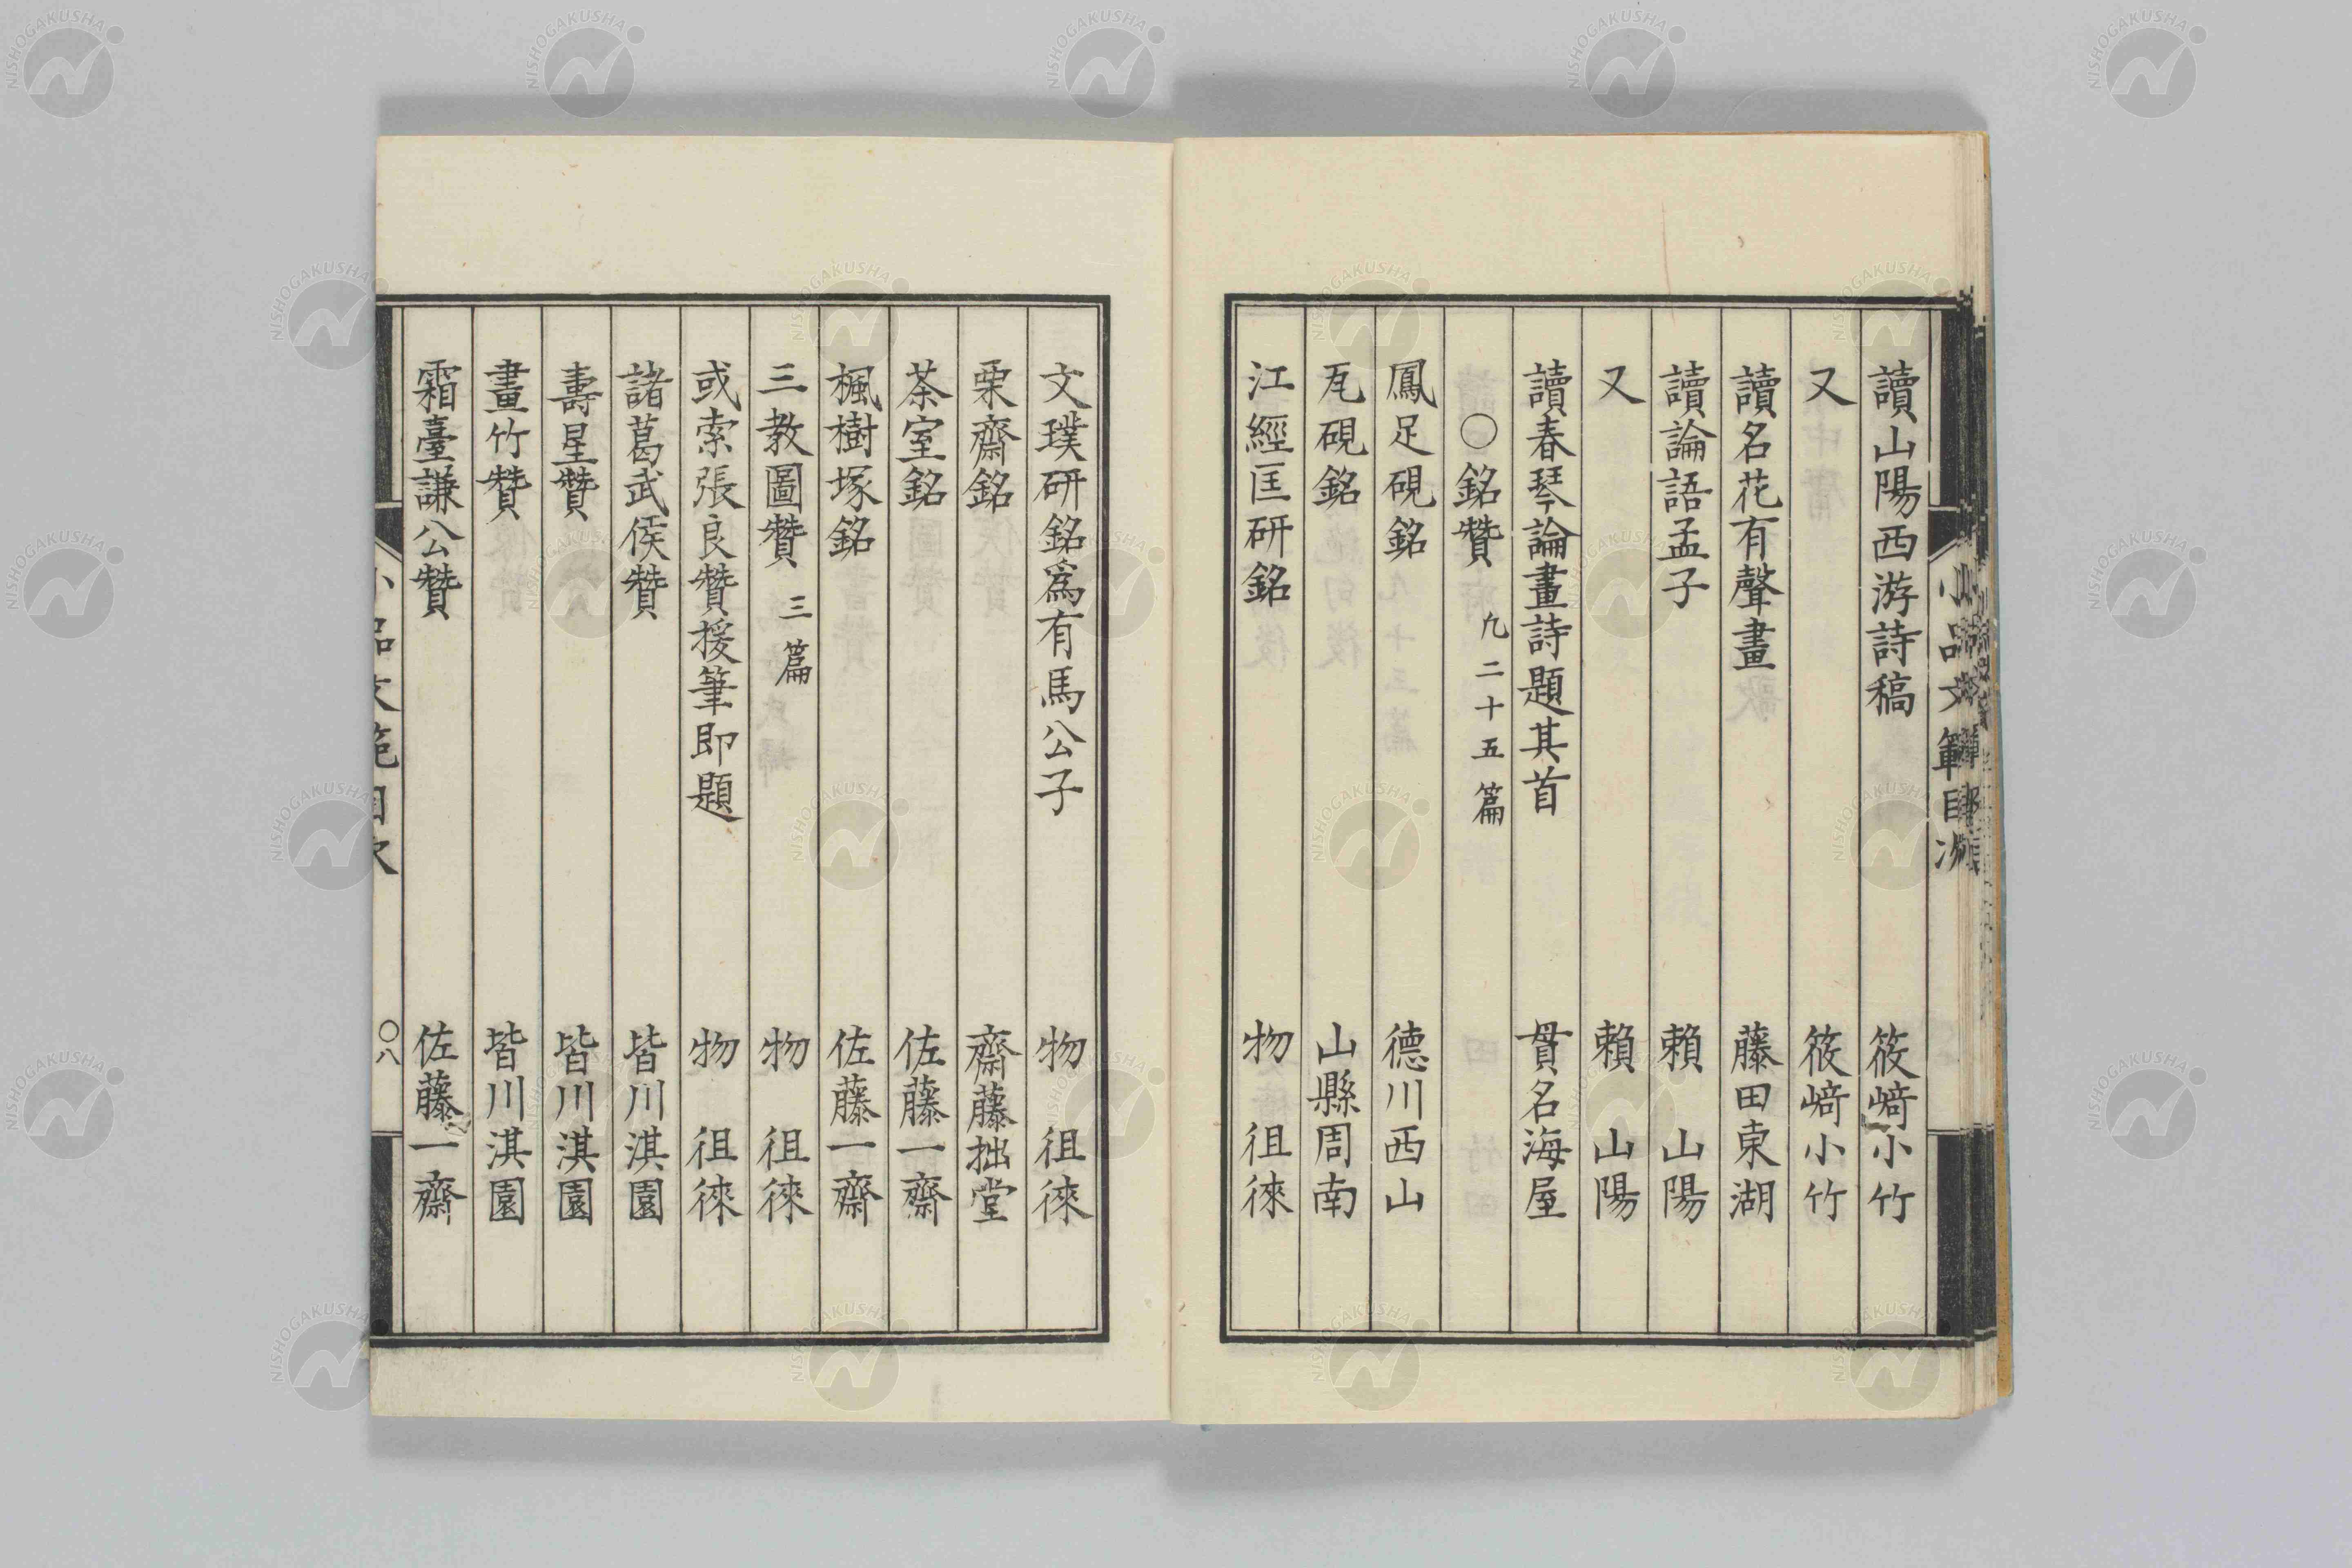 讀山陽西游詩稿 筱﨑小竹
又 筱﨑小竹
讀名花有聲畫 藤田東湖
讀論語孟子 賴 山陽
又 賴 山陽
讀春琴論畫詩題其首 貫名海屋
〇銘贊 九二十五篇
鳳足硯銘 德川西山
瓦硯銘 山縣周南
江經匡研銘 物 徂徠
文璞研銘爲有馬公子 物 徂徠
栗齋銘 齋藤拙堂
茶室銘 佐藤一齋
楓樹塚銘 佐藤一齋
三教圖贊 三篇 物 徂徠
或索張良贊援筆即題 物 徂徠
諸葛武侯贊 皆川淇園
壽星贊 皆川淇園
畫竹贊 皆川淇園
霜臺謙公贊 佐藤一齋
小品文範目次 〇八
NISHOGAKUSHA